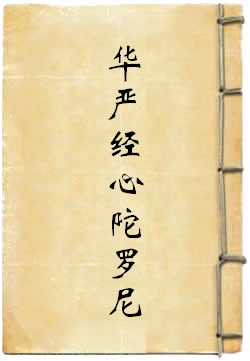 华严经心陀罗尼